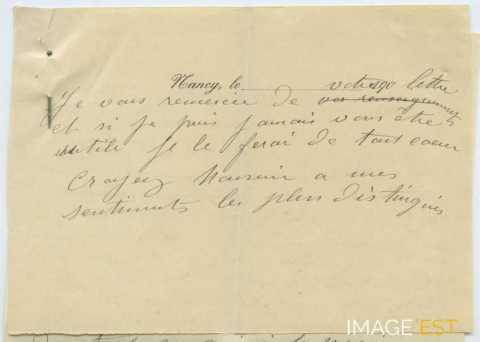 Nancy, le votre 190 lettre
Je vous remercie de vos renseignements
et si je puis jamais vous être
utile je le ferai de tout coeur
Croyez Monsieur a mes
sentiments les plus distingués
IMAGE'EST